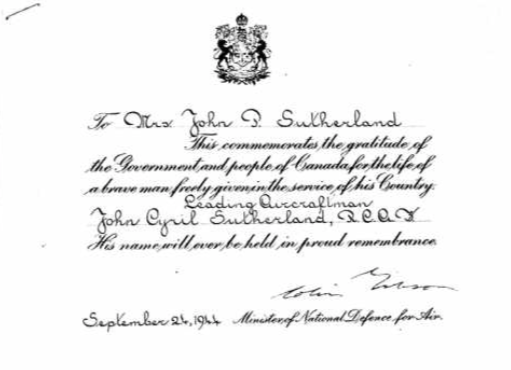 To Mrs John D. Sutherland
This commemorates the gratitude of
the Government and people of Canada for the life of
a brave man freely given in the service of his Country.
Leading Aircraftman
John Cyril Sutherland, R.C.A.F.
His name will ever be held in proud remembrance.
Colin Gibson
September 24, 1944 Minister of National Defence for Air.